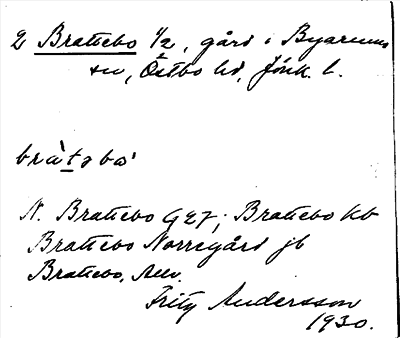 2 Brattebo 1/2, gård i Byarums
sn, Östbo hd, Jönk. l.
bra`təbo'
N. Brattebo GEF; Brattebo kb
Brattebo Norregård jb
Brattebo,
Fritz Andersson
1930.